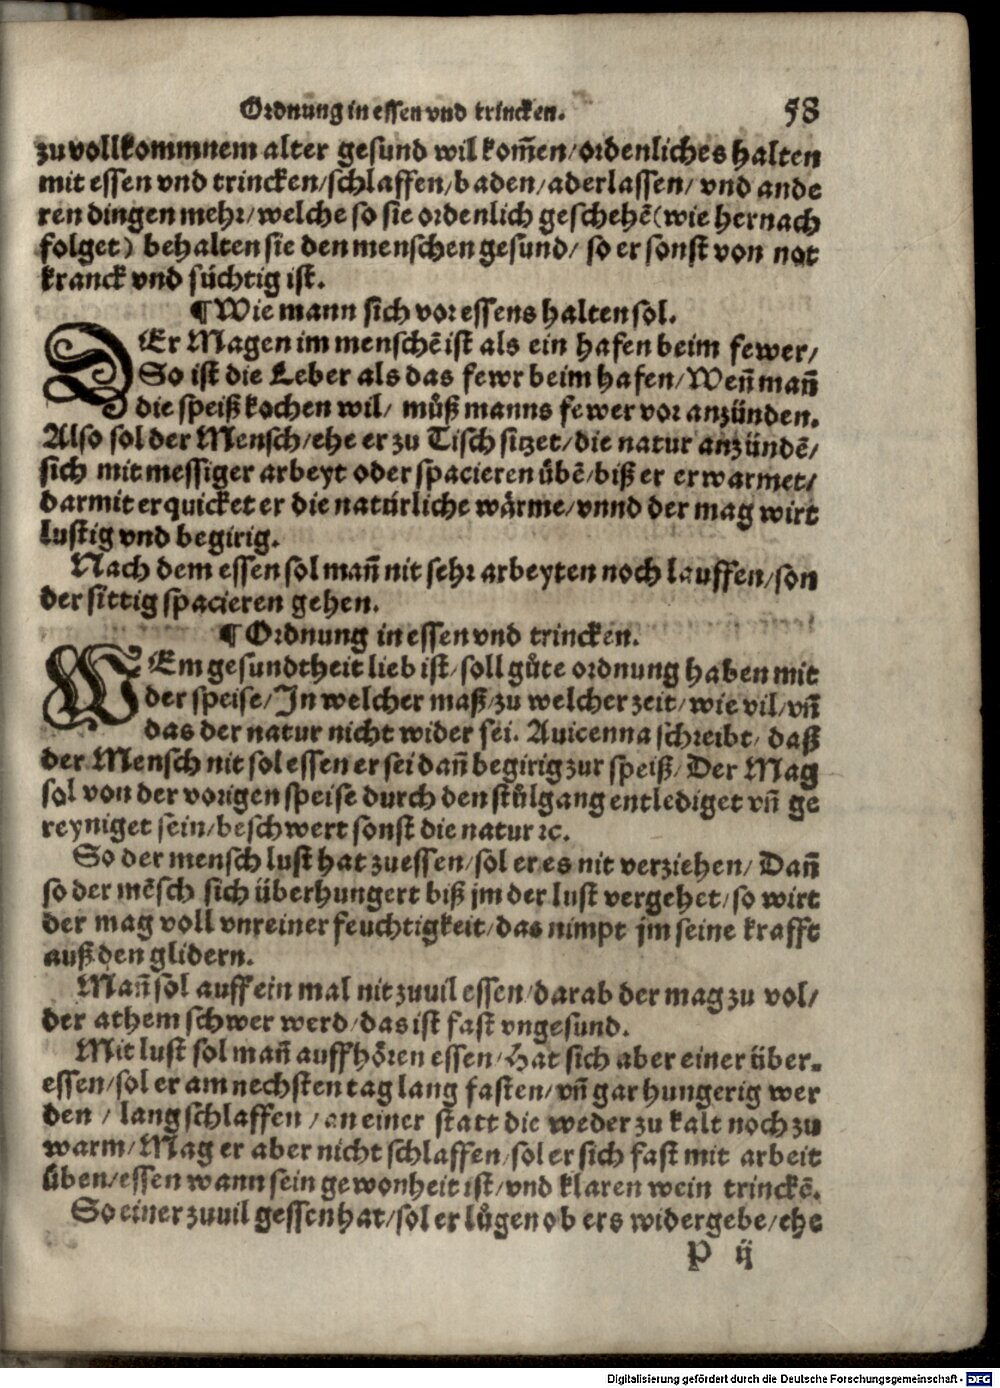 Ordnung in essen vnd trincken. 58
zu vollkommnem alter gesund wil kom̃en/ordenliches halten
mit essen vnd trincken/schlaffen/baden/aderlassen/ vnd ande
ren dingen mehr/welche so sie ordenlich geschehẽ(wie hernach
folget) behalten sie den menschen gesund/ so er sonst von not
kranck vnd süchtig ist.
¶ Wie mann sich vor essens halten sol.
DEr Magen im menschẽ ist als ein hafen beim fewer/
So ist die Leber als das fewr beim hafen/Weñ mañ
die speiß kochen wil/ můß manns fewer vor anzünden.
Also sol der Mensch/ehe er zu Tisch sitzet/die natur anzündẽ/
sich mit messiger arbeyt oder spacieren übẽ/biß er erwarmet/
darmit erquicket er die natürliche wärme/vnnd der mag wirt
lustig vnd begirig.
Nach dem essen sol mañ nit sehr arbeyten noch lauffen/son
der sittig spacieren gehen.
¶ Ordnung in essen vnd trincken.
WEm gesundtheit lieb ist/soll gůte ordnung haben mit
der speise/In welcher maß/zu welcher zeit/wie vil/vñ
das der natur nicht wider sei. Auicenna schreibt/ daß
der Mensch nit sol essen er sei dañ begirig zur speiß/Der Mag
sol von der vorigen speise durch den stůlgang entlediget vñ ge
reyniget sein/beschwert sonst die natur ꝛc.
So der mensch lust hat zu essen/sol er es nit verziehen/ Dañ
so der mẽsch sich überhungert biß jm der lust vergehet/so wirt
der mag voll vnreiner feuchtigkeit/das nimpt jm seine krafft
auß den glidern.
Mañ sol auff ein mal nit zuuil essen/darab der mag zu vol/
der athem schwer werd/das ist fast vngesund.
Mit lust sol mañ auffhören essen/Hat sich aber einer über-
essen/sol er am nechsten tag lang fasten/vñ gar hungerig wer
den / lang schlaffen /an einer statt die weder zu kalt noch zu
warm/Mag er aber nicht schlaffen/sol er sich fast mit arbeit
üben/essen wann sein gewonheit ist/vnd klaren wein trinckẽ.
So einer zuuil gessen hat/sol er lůgen ob ers widergebe/ehe
P ij
Digitalisierung gefördert durch die Deutsche Forschungsgemeinschaft - DFG